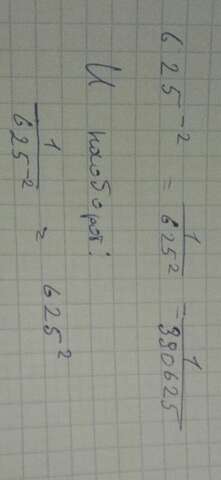 625⁻² = 1/625² = 1/390625
И наоборот:
1/625⁻² = 625²